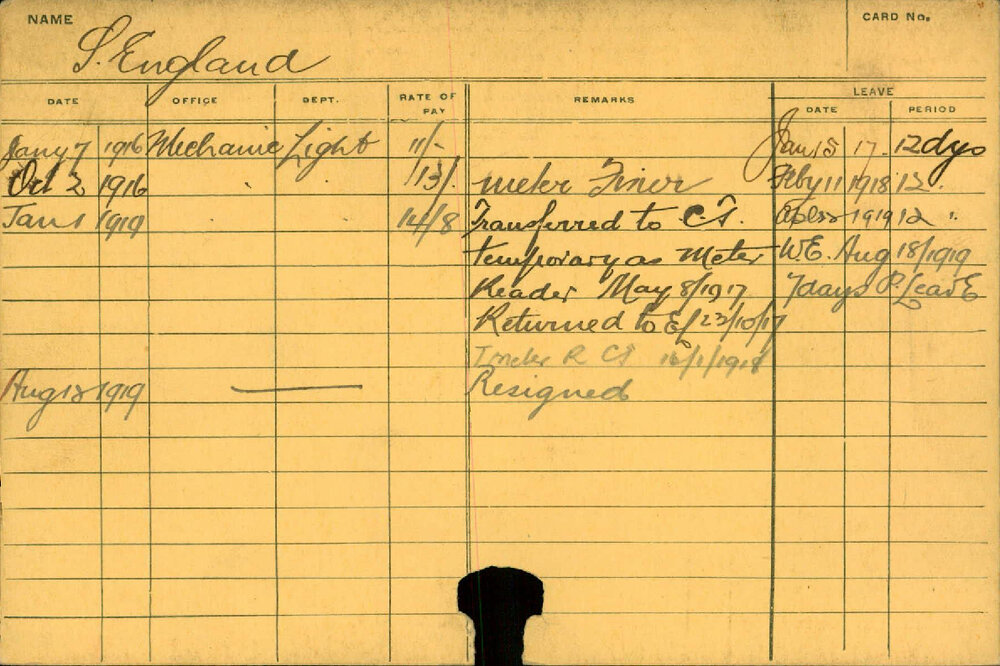 NAME
CARD No.
S. England
DATE OFFICE DEPT. RATE OF PAY REMARKS LEAVE
DATE PERIOD
Jany 7 1916 Mechanic Light 11/- Jan 15 17. 12 dys
Oct 2 1916 13/. meter Fixer Feby 11 1918 12.
Jan 1 1919 14/8 Transferred to C.T. 1919 12 "
temporary as Meter W.E. Aug 18/1919
Reader May 8/1917 7days P. Leave
Returned to EL 23/10/17
R CT 16/1/1918
Aug 18 1919 — Resigned